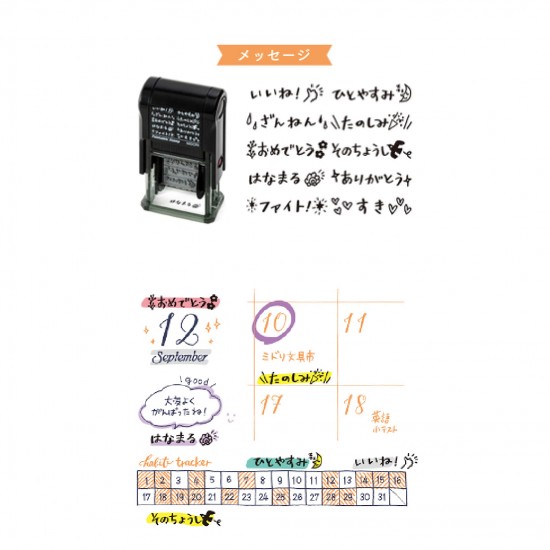 メッセージ
いいね! ひとやすみ
ざんねん たのしみ
おめでとう そのちょうし
はなまる ありがとう
ファイト! すき
はなまる
おめでとう
12
September
10
11
ミドリ文具市
たのしみ
good
大分よく
がんばったね!
はなまる
17
18
英語
小テスト
habit tracker
ひとやすみ
いいね!
1 2 3 4 5 6 7 8 9 10 11 12 13 14 15 16
17 18 19 20 21 22 23 24 25 26 27 28 29 30 31
そのちょうし